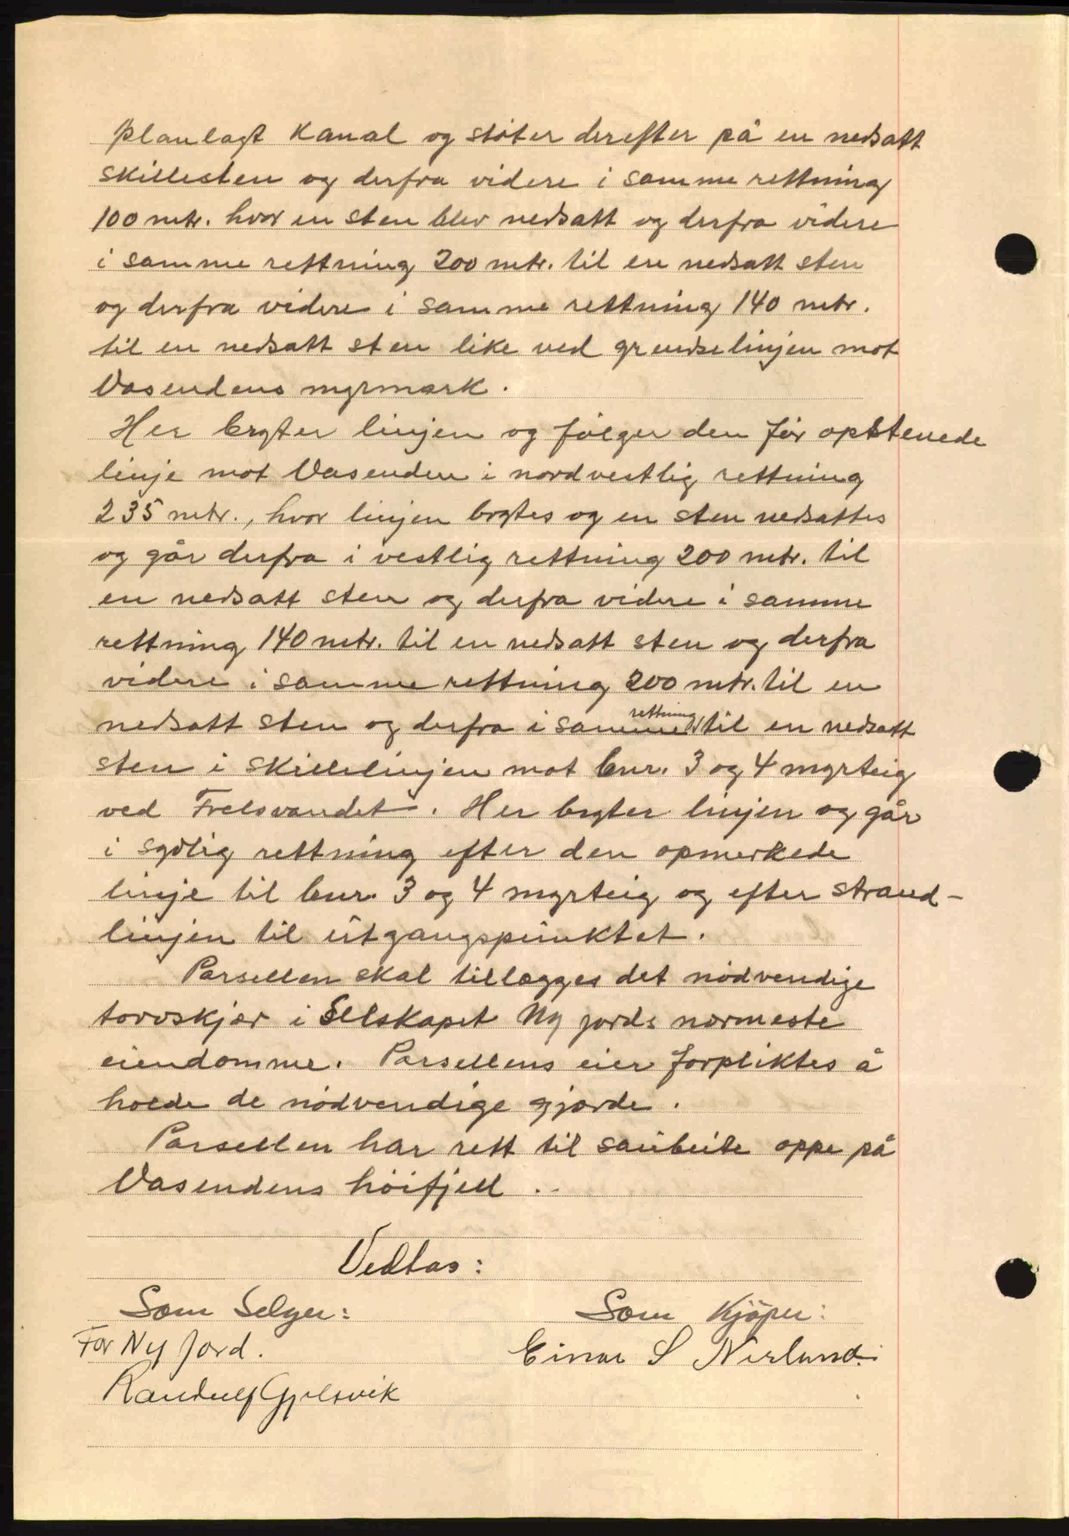 planlagt Kanal og støter derefter på en nedsatt
skillesten og derfra videre i samme rettning
100 mtr. hvor en sten blev nedsatt og derfra videre
i samme rettning 200 mtr. til en nedsatt sten
og derfra videre i samme rettning 140 mtr.
til en nedsatt sten like ved grendselinjen mot
Vasendens myrmark.
Her brytes linjen og følger den før opstenede
linje mot Vasenden i nordvestlig rettning
235 mtr., hvor linjen brytes og en sten nedsattes
og går derfra i vestlig rettning 200 mtr. til
en nedsatt sten og derfra videre i samme
rettning 140 mtr. til en nedsatt sten og derfra
videre i samme rettning 200 mtr. til en
nedsatt sten og derfra i samme rettning til en nedsatt
sten i skillelinjen mot bnr. 3 og 4 myrteig
ved Frelsvandet. Her bryter linjen og går
i sydlig rettning efter den opmerkede
linje til bnr. 3 og 4 myrteig og efter strand-
linjen til utgangspunktet.
Parsellen skal tillegges det nødvendige
torvskjær i Selskapet Ny Jords nærmeste
eiendomme. Parsellens eier forpliktes å
holde de nødvendige gjærde.
Parsellen har rett til saubeite oppe på
Vasendens høifjell.
Vedtas:
Som Selger: Som Kjøper:
For Ny Jord. Einar S Nerlund.
Randulf Gjelsvik